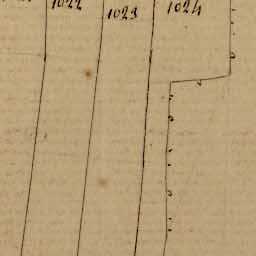 1022
1023
1024